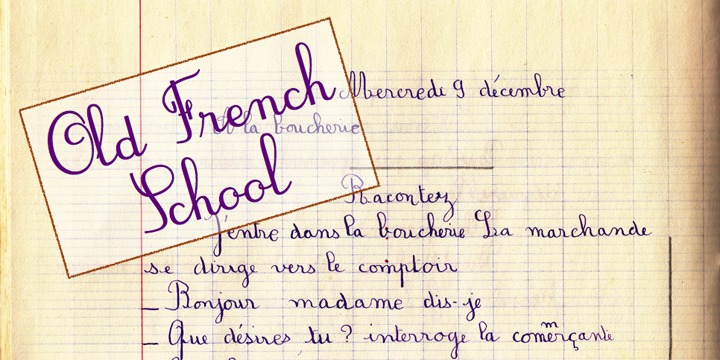 Old French
School
Mercredi 9 décembre
A la boucherie
Racontez
J'entre dans la boucherie La marchande
se dirige vers le comptoir
_ Bonjour madame dis-je
_ Que désires tu ? interroge la commerçante